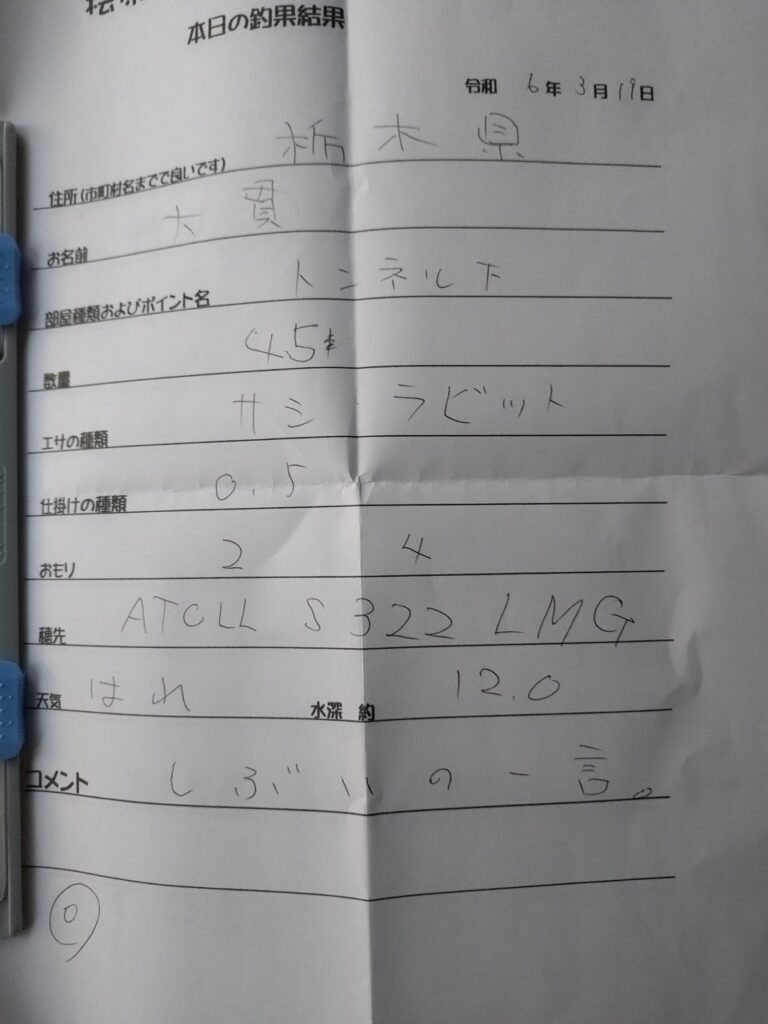 本日の釣果結果
令和 6年 3月 19日
住所(市町村名までで良いです) 栃木県
お名前 大貫
部屋種類およびポイント名 トンネル下
数量 45
エサの種類 サシ・ラビット
仕掛けの種類 0.5
おもり 2 4
穂先 ATOLL S322 LMG
天気 はれ 水深 約 12.0
コメント しぶいの一言。
0